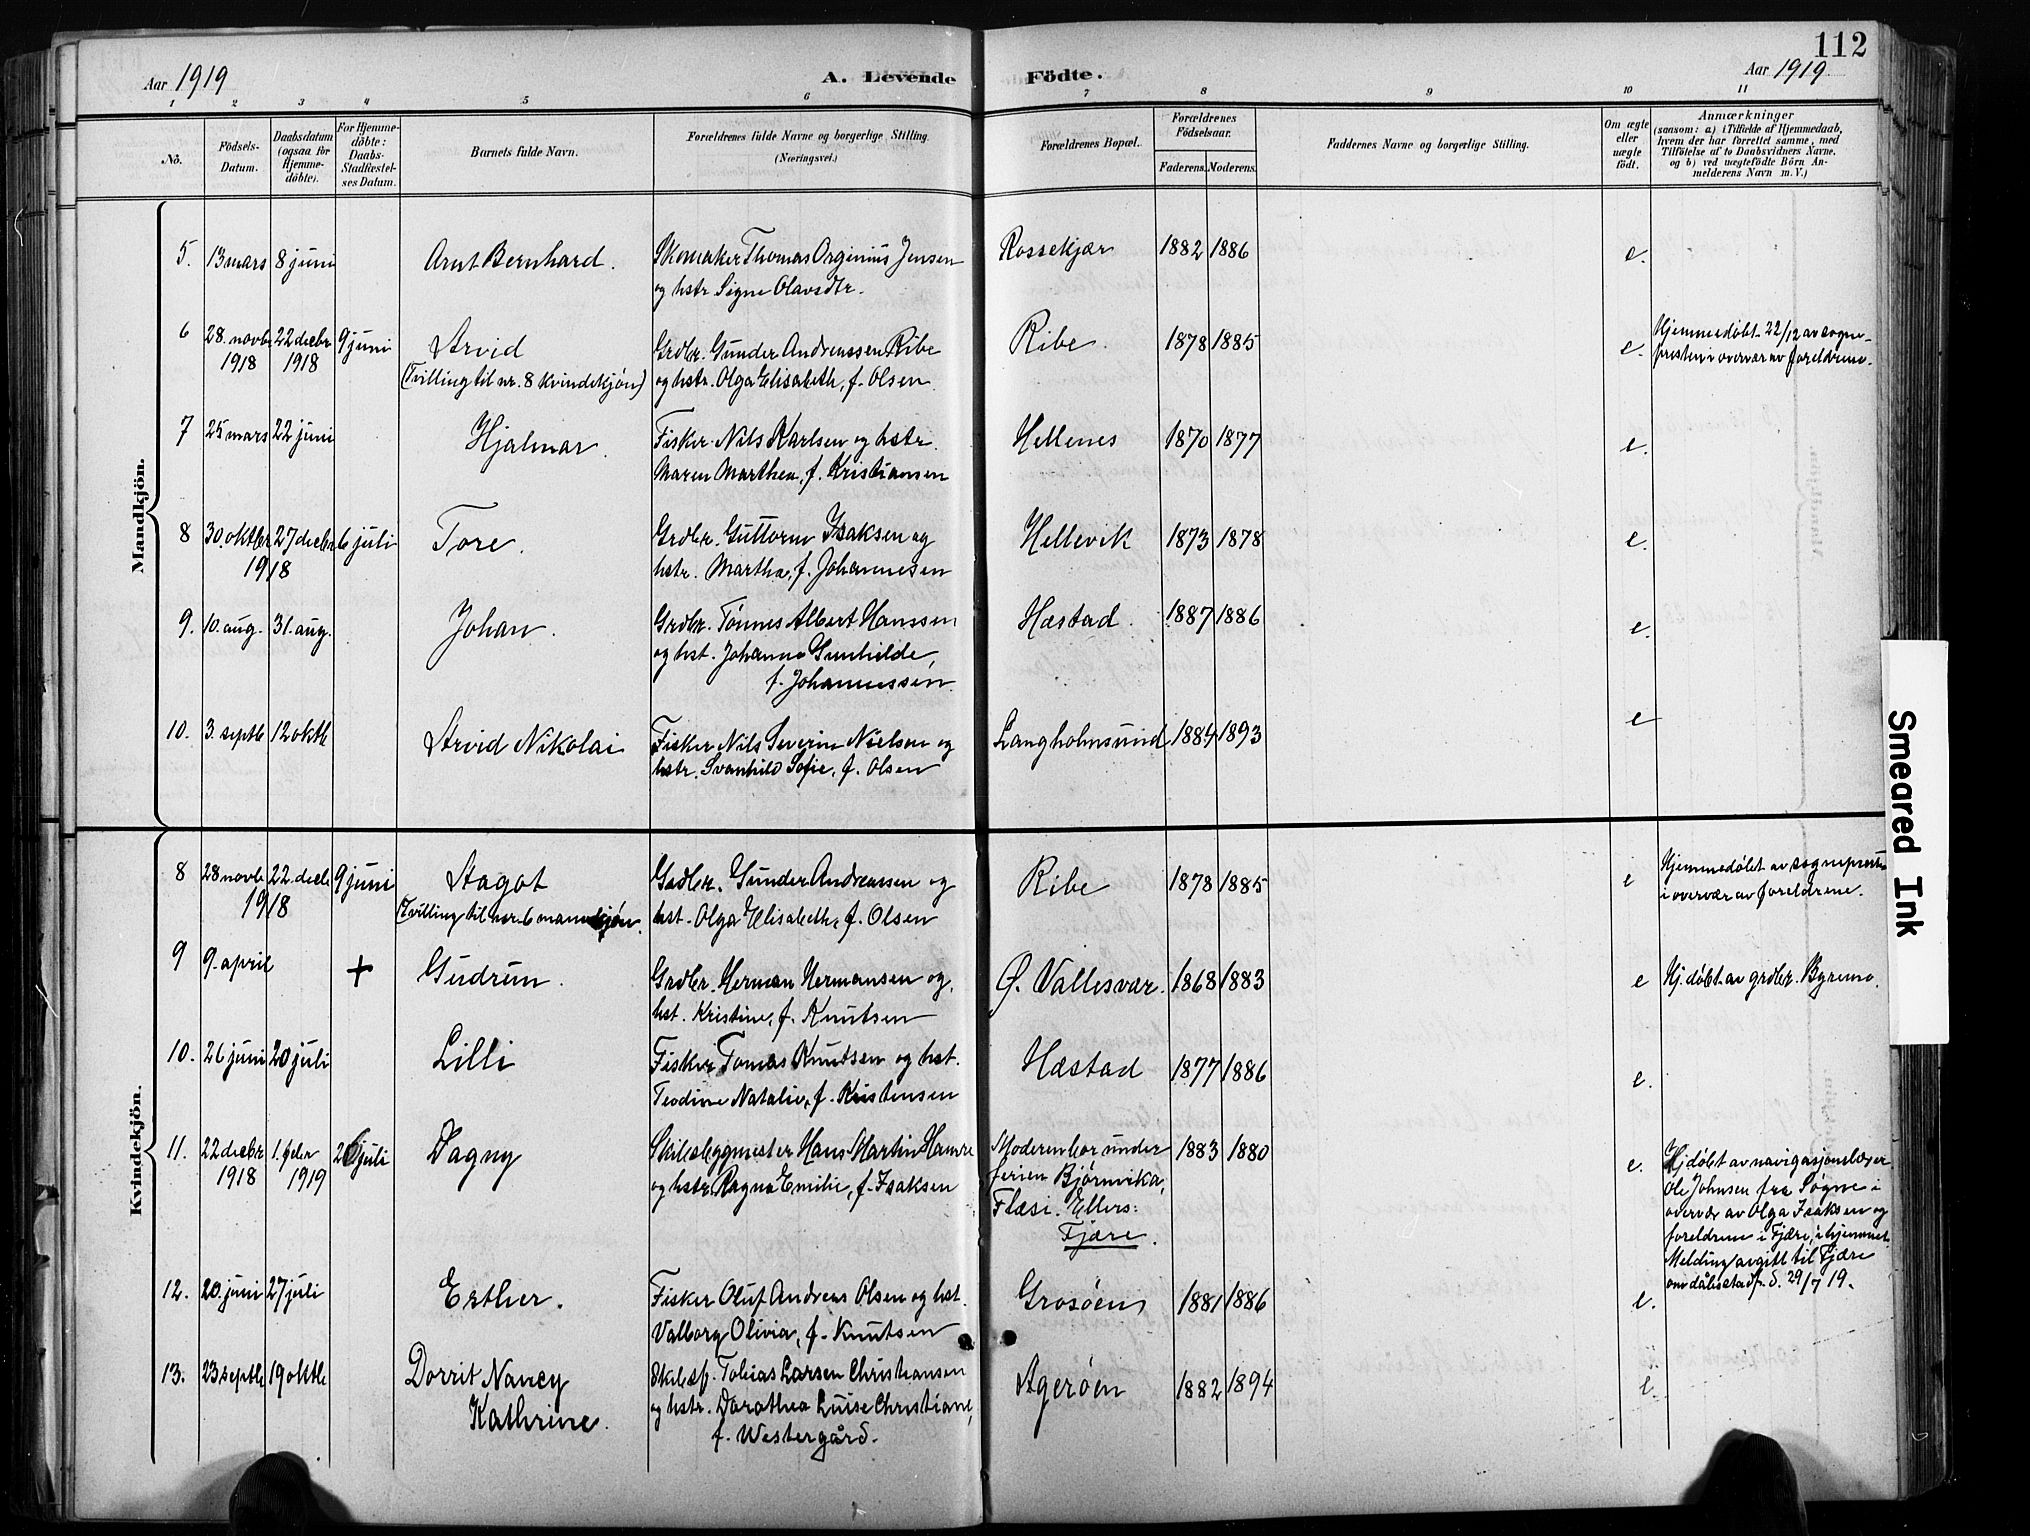 112
Aar 1919
A. Levende Födte.
Aar 1919
1 2 3 4 5 6 7 8 9 10 11
No.
Födsels-Datum.
Daabsdatum (ogsaa for Hjemme-döbte).
For Hjemme-döbte: Daabs-Stadfæstel-ses Datum.
Barnets fulde Navn.
Forældrenes fulde Navne og borgerlige Stilling.
(Næringsvei.)
Forældrenes Bopæl.
Forældrenes Födselsaar.
Faderens. Moderens.
Faddernes Navne og borgerlige Stilling.
Om ægte eller uægte födt.
Anmærkninger
(saasom: a) i Tilfælde af Hjemmedaab, hvem der har forrettet samme, med Tilföielse af to Daabsvidners Navne, og b) ved uægtefödte Börn An-melderens Navn m. V.)
Mandkjön.
5. 13 mars 8 juni Arnt Bernhard. Skomaker Thomas Orginius Jensen Rossekjær 1882 1886 e.
og hstr Signe Olavsdtr.
6 28. novbr 22 decbr 9 juni Arvid Grdbr. Gunder Andreassen Ribe Ribe. 1878 1885 e. Hjemmedøbt 22/12 av sogne-
1918 1918 (Tvilling til nr. 8 kvindekjøn) og hstr. Olga Elisabeth, f. Olsen. presten i overvær av foreldrene.
7 25 mars 22 juni Hjalmar. Fisker Nils Karlsen og hstr. Hellenes 1870 1877 e.
Maren Marthea, f. Kristiansen
8 30. oktbr 27 decbr 6 juli Tore. Grdbr. Guttorm Isaksen og Hellevik 1873 1878 e.
1918 hstr. Martha, f. Johannesen
9. 10. aug. 31. aug. Johan. Grdbr. Tønnes Albert Hanssen Hæstad. 1887 1886 e.
og hst. Johanne Gunhilde,
f. Johannessen.
10. 3. septbr 12 oktb Arvid Nikolai Fisker Nils Severin Nielsen og Langholmsund 1884 1893 e
hstr. Svanhild Sofie, f. Olsen
Kvindekjön.
8 28 novb 22. decb 9 juni Aagot Grdbr. Gunder Andreassen og Ribe 1878 1885 e Hjemmedøbt av sognepresten
1918 (Tvilling til nr. 6 mannkjøn. hst. Olga Elisabeth, f. Olsen i overvær av foreldrene.
9 9. april + Gudrun. Grdbr. Herman Hermansen og Ø. Vallesvær. 1868 1883 e Hj. døbt av grdbr. Byremo.
hst. Kristine, f. Knutsen
10. 26 juni 20 juli Lilli Fisker Tomas Knutsen og hst. Hæstad 1877 1886 e.
Teodine Natalie, f. Kristensen
11. 22 decbr 1. febr juli Dagny Skibsbygmester Hans Martin Hamre Moderen bor under 1883 1880 e. Hj døbt av navigasjonslærer
1918 1919 og hstr. Ragna Emilie, f. Isaksen ferien Bjørnvika, Ole Johnsen fra Søgne i
Flæsi. Ellers: overvær av Olga Isaksen og
Fjære. foreldrene i Fjære, i hjemmet.
Melding avgitt til Fjære
29/7 19.
12. 20. juni 27 juli Esther. Fisker Oluf Andreas Olsen og hst. Grosøen 1881 1886 e.
Valborg Olivia, f. Knutsen
13. 23 septb 19 oktb Dorrit Nancy Skibsf. Tobias Larsen Christiansen Agerøen 1882 1894 e.
Kathrine. og hstr. Dorathea Luise Christiane,
f. Westergård.
Smeared Ink